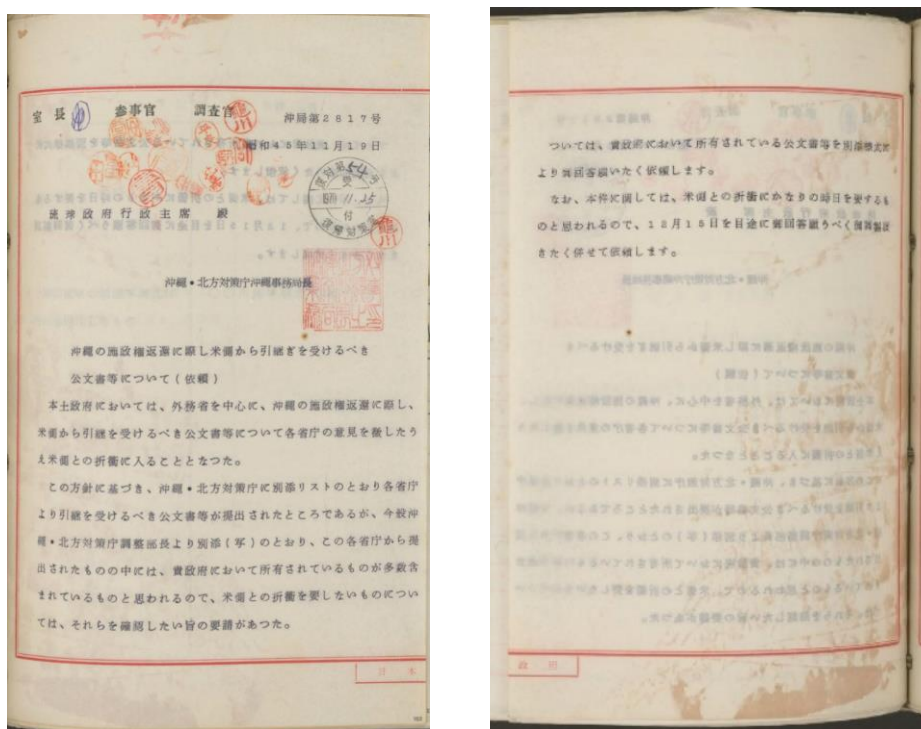 室長 参事官 調査官
沖局第2817号
昭和45年11月19日
琉球政府行政主席 殿
沖縄・北方対策庁沖縄事務局長
沖縄の施政権返還に際し米側から引継ぎを受けるべき
公文書等について(依頼)
本土政府においては、外務省を中心に、沖縄の施政権返還に際し、
米側から引継を受けるべき公文書等について各省庁の意見を徴したう
え米側との折衝に入ることとなつた。
この方針に基づき、沖縄・北方対策庁に別添リストのとおり各省庁
より引継を受けるべき公文書等が提出されたところであるが、今般沖
縄・北方対策庁調整部長より別添(写)のとおり、この各省庁から提
出されたものの中には、貴政府において所有されているものが多数含
まれているものと思われるので、米側との折衝を要しないものについ
ては、それらを確認したい旨の要請があつた。
ついては、貴政府において所有されている公文書等を別添様式に
より御回答願いたく依頼します。
なお、本件に関しては、米側との折衝にかなりの時日を要するも
のと思われるので、12月15日を目途に御回答願うべく
きたく併せて依頼します。